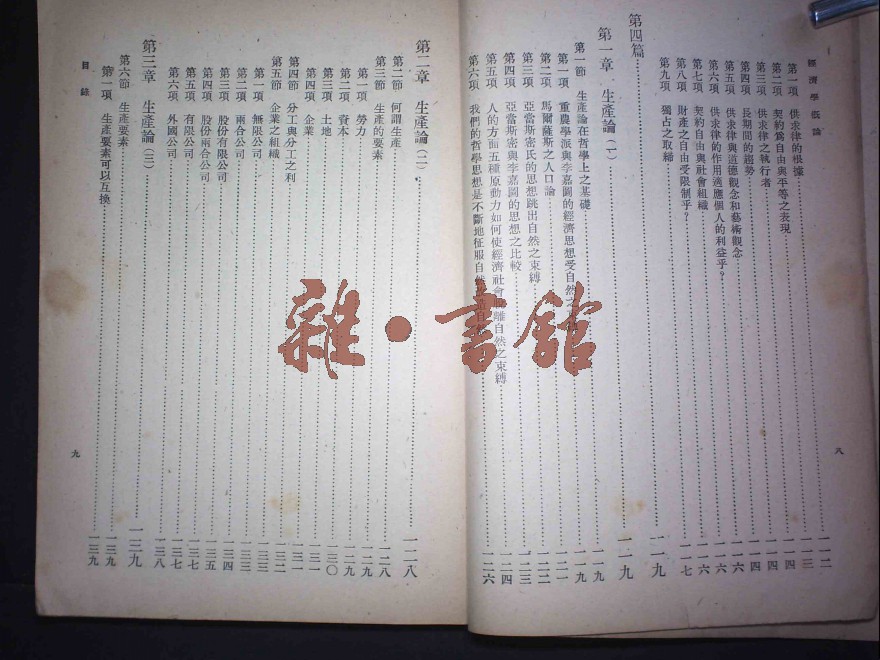 經濟學概論
第一項 供求律的根據……一一二
第二項 契約爲自由與平等之表現……一一三
第三項 供求律之執行者……一一四
第四項 長期間的趨勢……一一四
第五項 供求律與道德觀念和藝術觀念……一一四
第六項 供求律的作用適應個人的利益乎？……一一六
第七項 契約自由與社會組織……一一六
第八項 財產之自由受限制乎？……一一六
第九項 獨占之取締……一一七
第四篇……一一九
第一章 生產論（一）……一一九
第一節 生產論在哲學上之基礎……一一九
第一項 重農學派與李嘉圖的經濟思想受自然之……一一九
第二項 馬爾薩斯之人口論……一二一
第三項 亞當斯密氏的思想跳出自然之束縛……一二二
第四項 亞當斯密與李嘉圖的思想之比較……一二三
第五項 人的方面五種原動力如何使經濟社會離自然之束縛……一二四
第六項 我們的哲學思想是不斷地征服自然……一二六
八
第二章 生產論（二）……一二八
第二節 何謂生產……一二八
第三節 生產的要素……一二九
第一項 勞力……一二九
第二項 資本……一三〇
第三項 土地……一三一
第四項 企業……一三二
第四節 分工與分工之利……一三二
第五節 企業之組織……一三三
第一項 無限公司……一三三
第二項 兩合公司……一三四
第三項 股份有限公司……一三五
第四項 股份兩合公司……一三七
第五項 有限公司……一三七
第六項 外國公司……一三八
第三章 生產論（三）……一三九
第六節 生產要素……一三九
第一項 生產要素可以互換……一三九
目錄
九
雜·書館